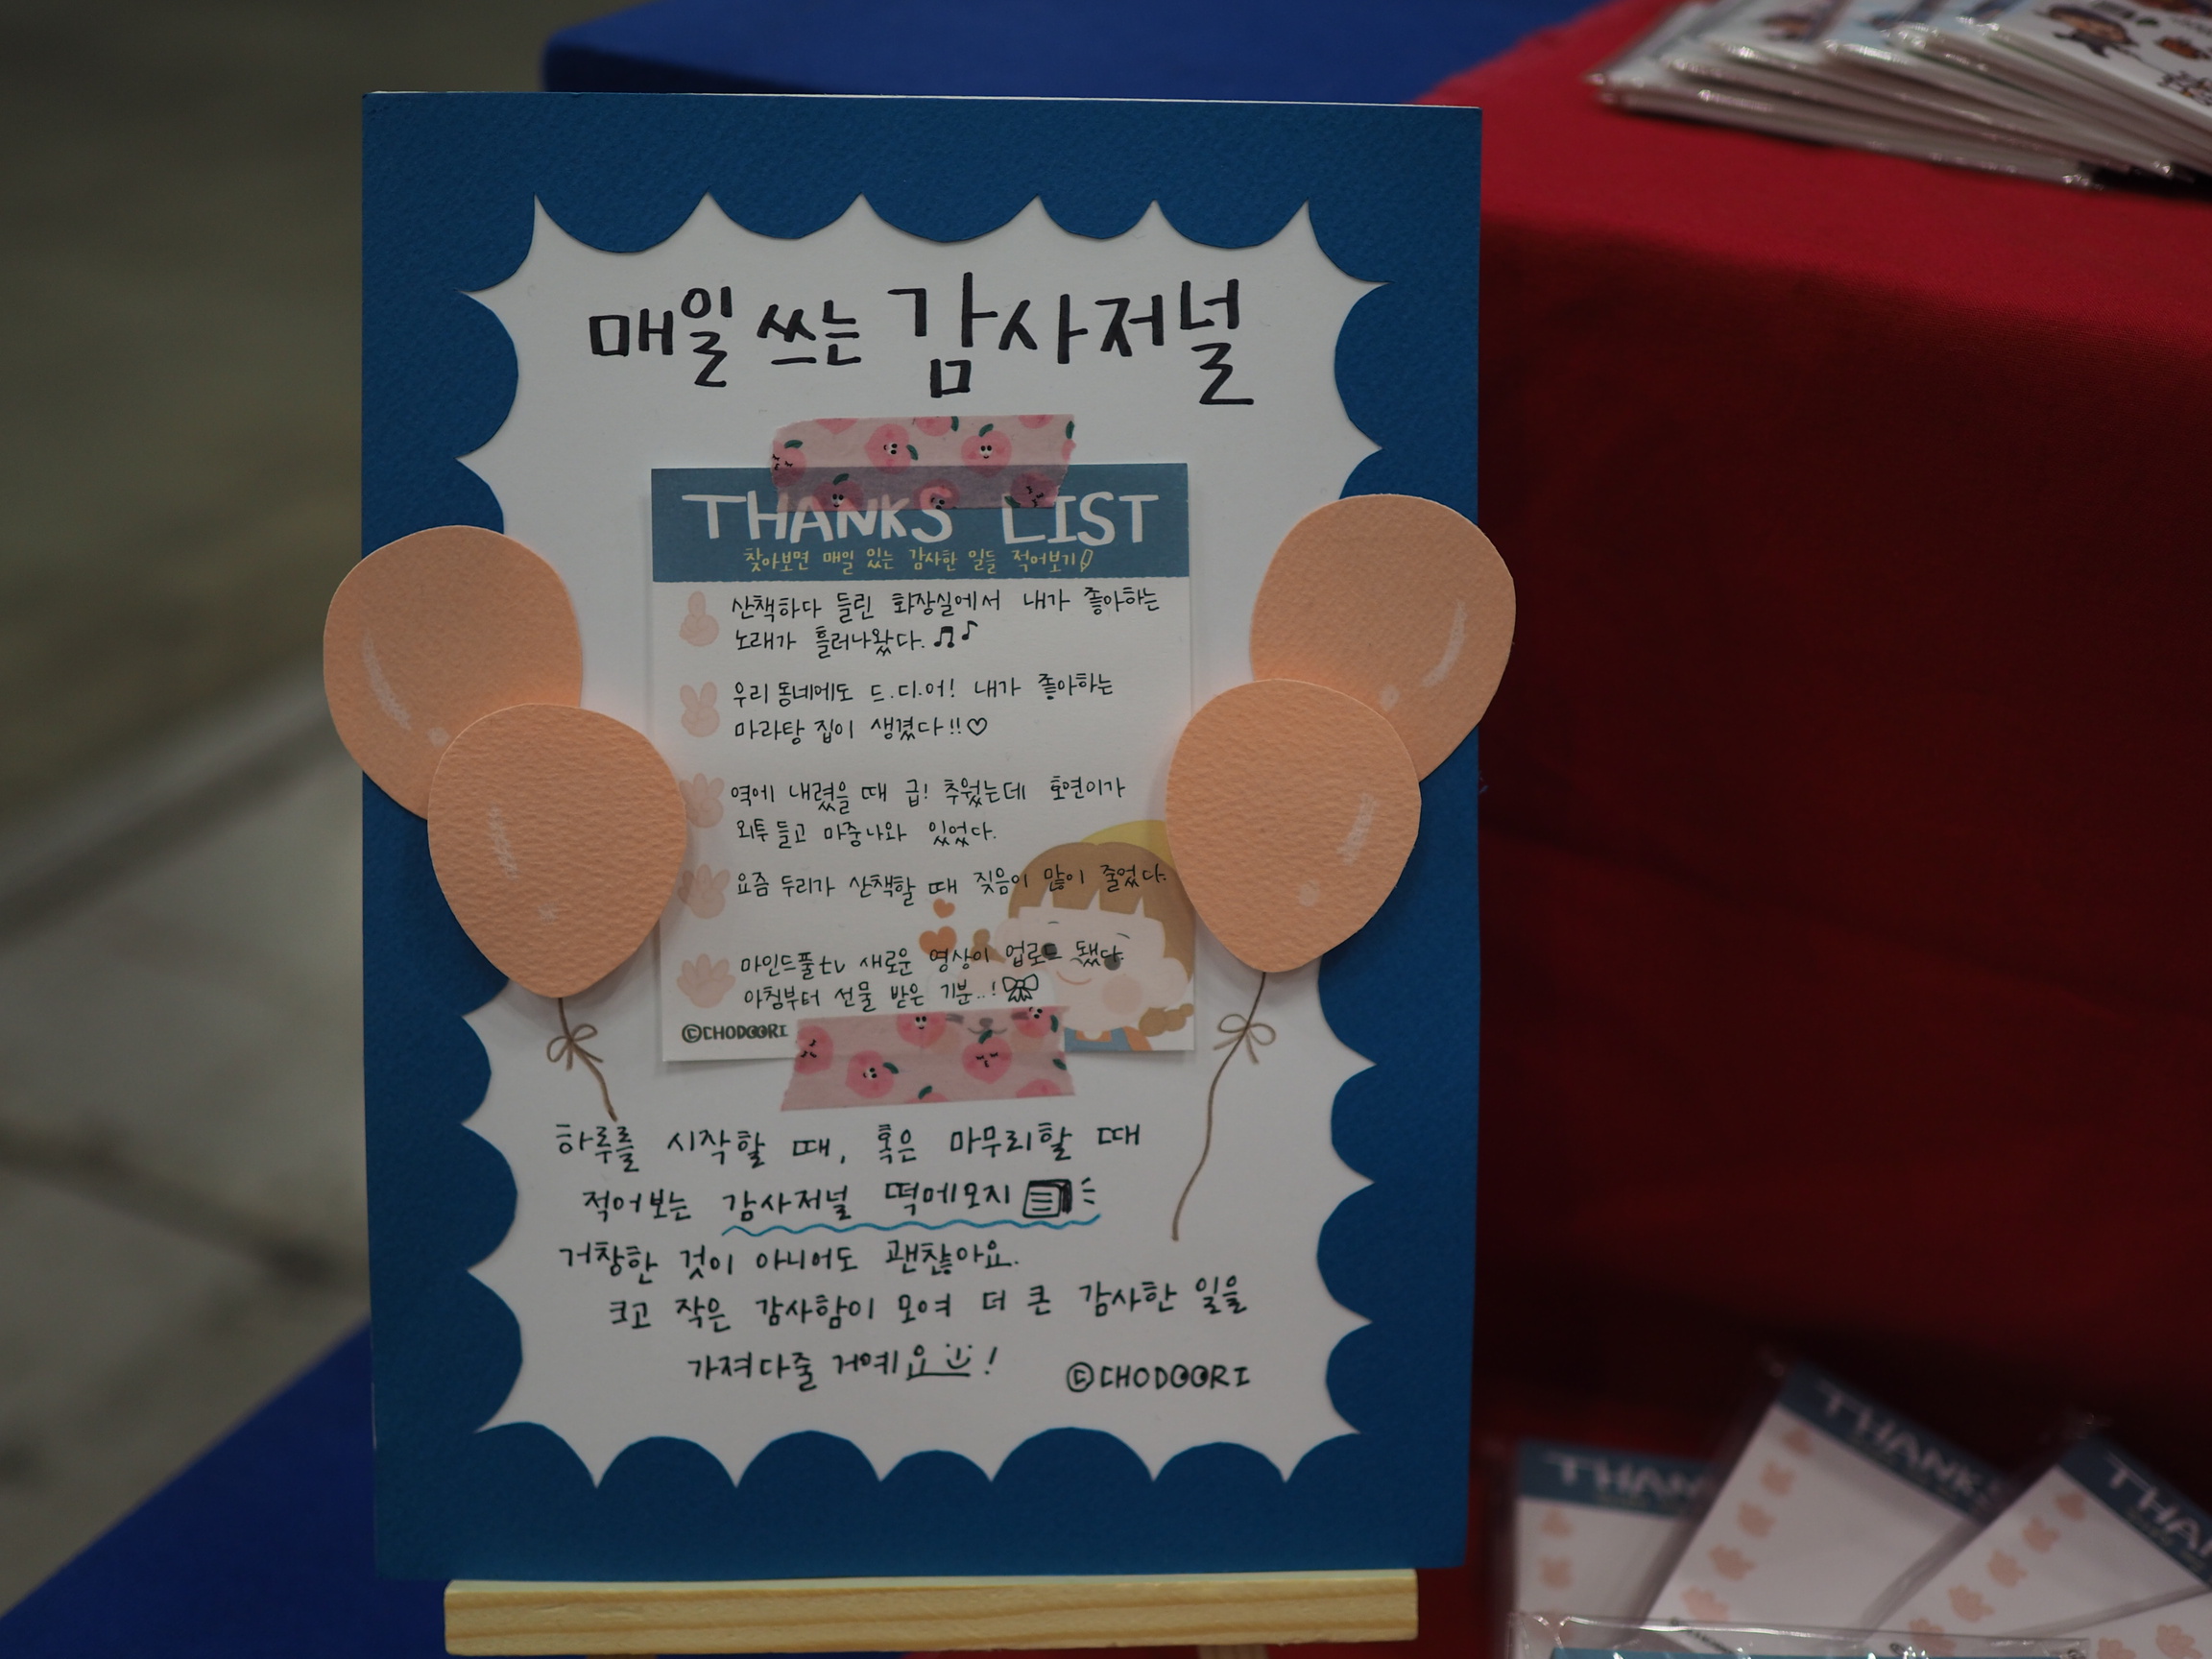 매일 쓰는 감사저널
THANKS LIST
찾아보면 매일 있는 감사한 일들 적어보기
산책하다 들린 화장실에서 내가 좋아하는
노래가 흘러나왔다.
우리 동네에도 드.디.어! 내가 좋아하는
마라탕 집이 생겼다!!♡
역에 내렸을 때 급! 추웠는데 호연이가
외투 들고 마중나와 있었다.
요즘 두리가 산책할 때 짖음이 많이 줄었다.
마인드풀tv 새로운 영상이 업로드 됐다.
아침부터 선물 받은 기분..!
©CHODOORI
하루를 시작할 때, 혹은 마무리할 때
적어보는 감사저널 떡메모지
거창한 것이 아니어도 괜찮아요.
크고 작은 감사함이 모여 더 큰 감사한 일을
가져다줄 거예요!
©CHODOORI
THAN
THANKS
THA